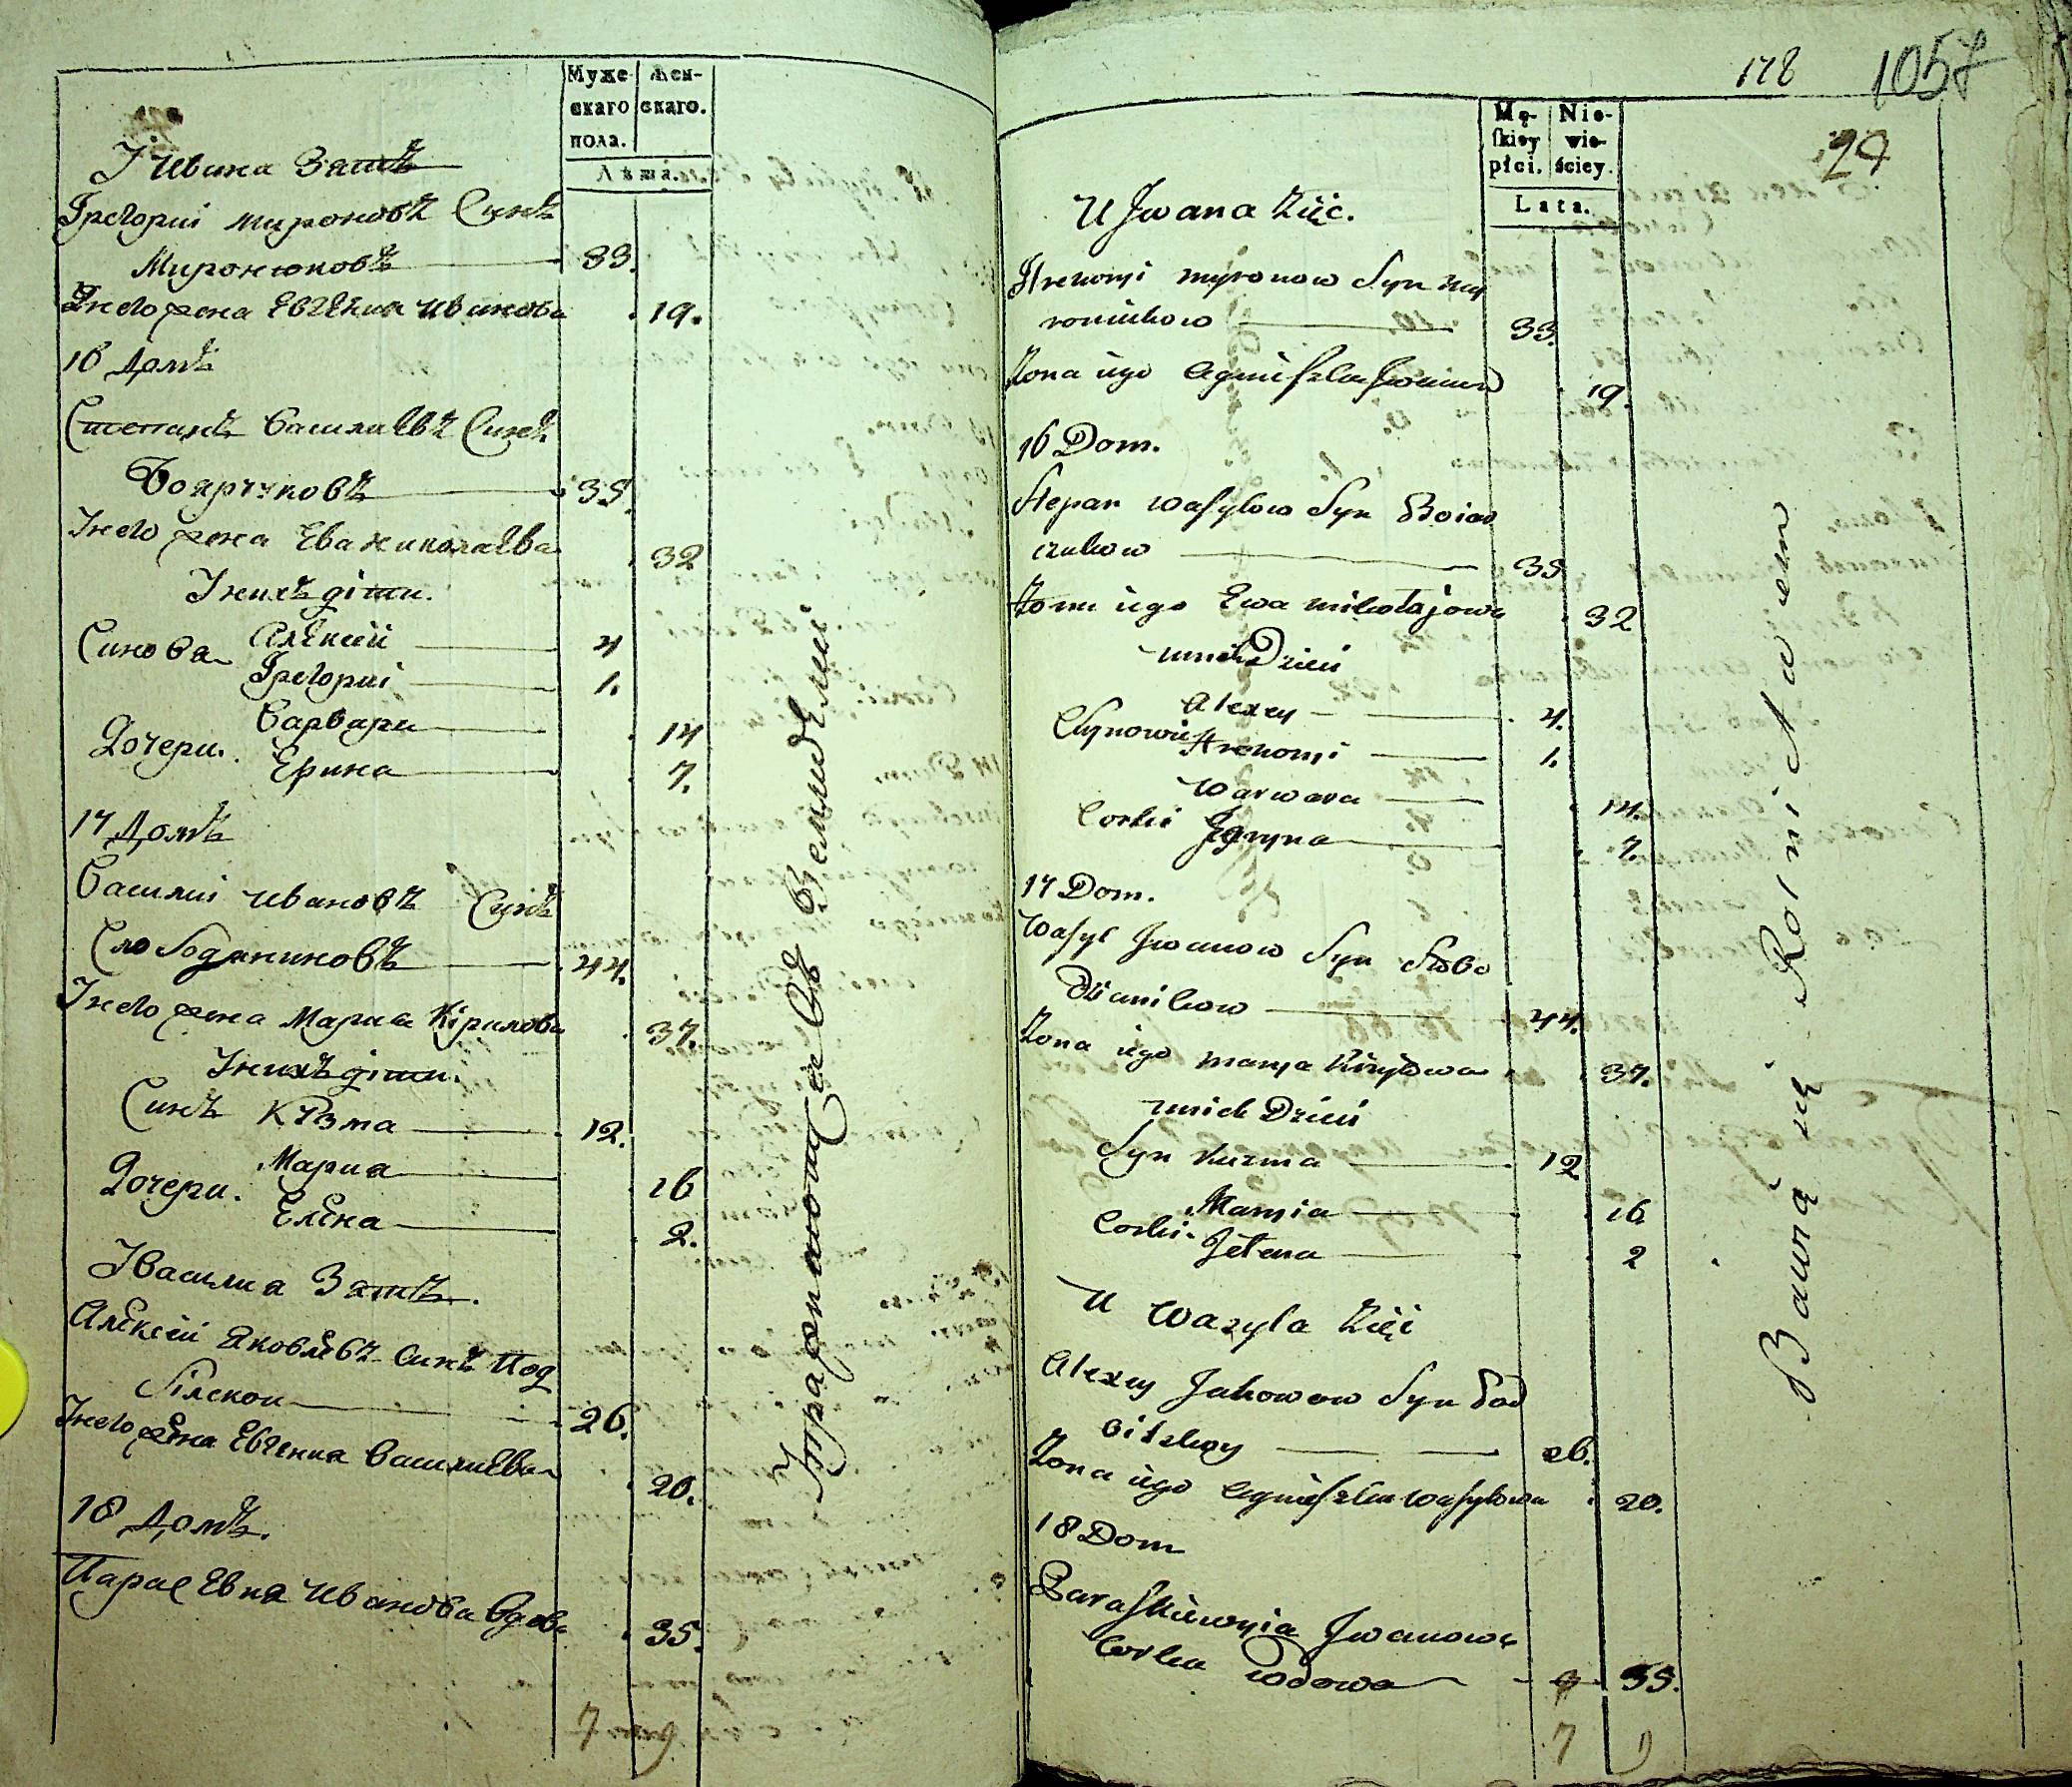 Муже
скаго
пола.
Жен-
скаго.
Лѣта.
У Ивана Зать
Григориі Мироновъ Синъ
Миронюковъ 33.
Его жена Евгения Иванова 19.
16 Домъ
Степанъ Василиевъ Синъ
Боярчуковъ 35.
Его жена Ева Николаева 32
У нихъ діти.
Синова Алексій 4
Григориі 1.
Дочери. Варвара 14
Ерина 7.
17 Домъ
Василиі Ивановъ Синъ
Слободяниковъ 44.
Его жена Мария Кірилова 37.
У нихъ діти.
Синъ Кузма 12.
Дочери. Мария 16
Елена 2.
У Василиа Зать.
Алексій Яковлевъ Синъ Под
білскои 26.
Его жена Евгения Василиева 20.
18 Домъ.
Параскевия Иванова вдова 35.
7 9
178
1057
29
Mę-
skiey
płci.
Nie-
wie-
ściey.
Lata.
U Jwana Zięć.
Hrehory Myronow Syn My
roniukow 33.
Zona iego Agnieszka Jwanowa 19.
16 Dom.
Stepan Wasylow Syn Boiar
czukow 35
Zona iego Ewa Mikołajowa 32
U nich Dzieci
Synowie Alexey 4.
Hrehory 1.
Corki Warwara 14.
Jeryna 7.
17 Dom.
Wasyl Jwanow Syn Słobo
dzianikow 44.
Zona iego Marya Kiryłowa 37.
U nich Dzieci
Syn Kuzma 12
Corki. Maryia 16
Jełena 2
U Wasyla Zięć
Alexey Jakowow Syn Pod
bilskoy 26.
Zona iego Agnieszka Wasylowa 20.
18 Dom
Paraskiewia Jwanowa
Corka Wdowa 35.
7 9
Bawią się Rolnictwem